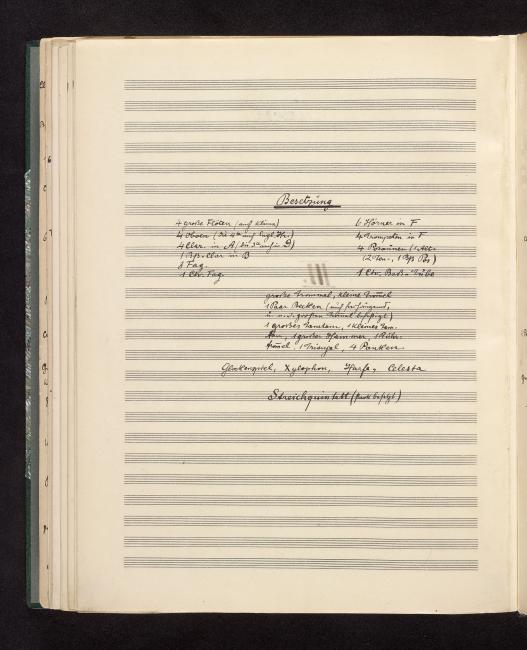 Besetzung
4 große Flöten (auch kleine)
4 Oboen (die 4te auch engl. Hr.)
4 Clar. in A (die 3te auch in D)
1 Bß-Clar in B
3 Fag
1 Ctr. Fag.
6 Hörner in F
4 Trompeten in F
4 Posaunen (1 Alt-
(2 Ten-, 1 Bß Pos)
1 Ctr. Baß-Tuba
III
große Trommel, kleine Trommel
1 Paar Becken (auch
u. a.d. großen Trommel befestigt)
1 großes Tamtam, 1 kleines Tam-
tam, 1 großer Hammer, 1 Rühr-
trommel 1 Triangel, 4 Pauken
Glockenspiel, Xylophon, Harfe, Celesta
Streichquintett (stark besetzt)